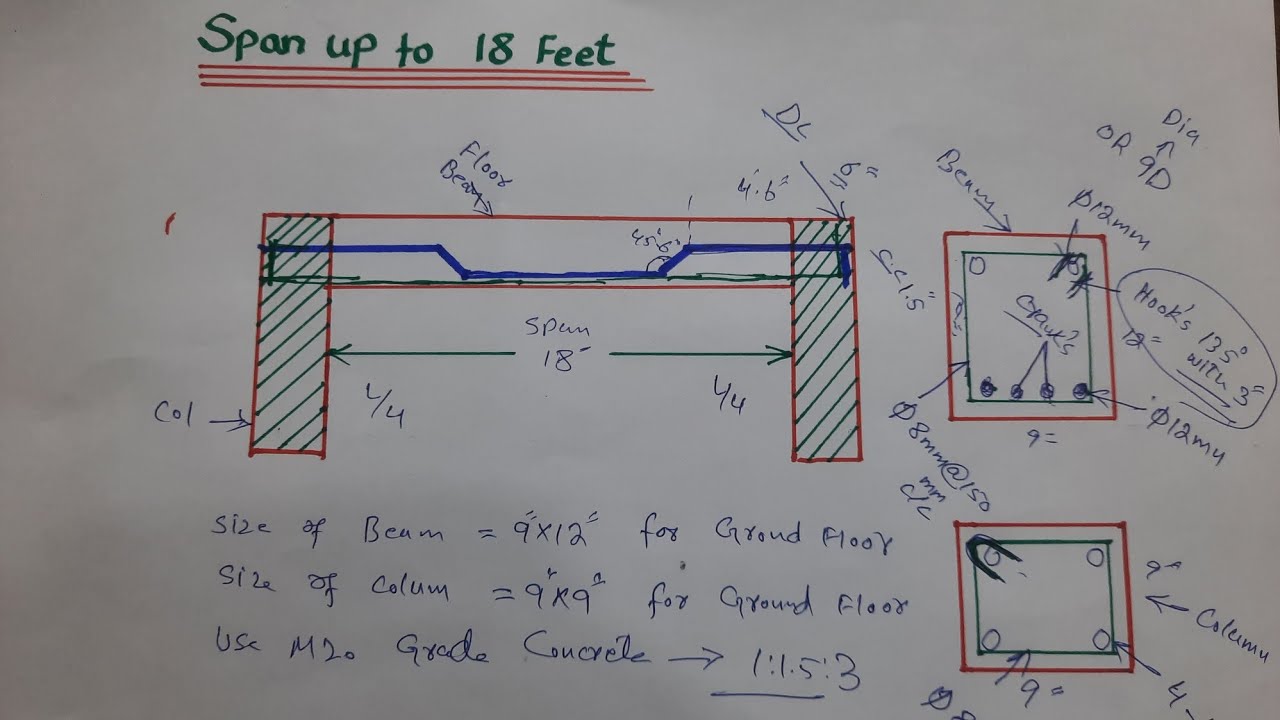 Span up to 18 Feet
Floor
Beam
DL
6"
4'.6"
45°
6"
C.C 1.5"
Span
18'
L/4
L/4
Col
Size of Beam = 9"X12" for Ground Floor
Size of Colum = 9"X9" for Ground Floor
Use M20 Grade Concrete → 1:1.5:3
Dia
↑
OR 9D
Beam
Φ12mm
Hook's 135°
with 3"
Crank's
12"
9"
Φ12mm
Φ8mm@150
mm
c/c
9"
Column
9"
4-
Φ8